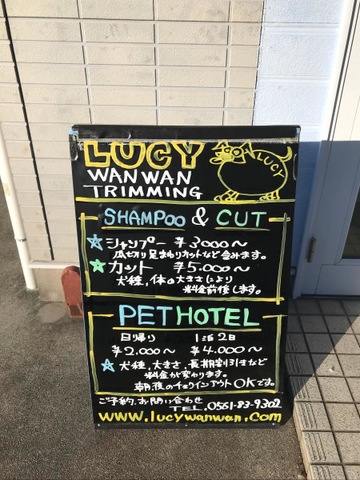 LUCY
WAN WAN
TRIMMING
LUCY
SHAMPOO & CUT
☆シャンプー ¥3000〜
爪切り足まわりカットなど含みます。
☆カット ¥5000〜
犬種、体の大きさにより
料金前後します。
PET HOTEL
日帰り 1泊2日
¥2.000〜 ¥4.000〜
☆犬種、大きさ、長期割引きなど
料金が変わります。
朝、夜のチェックインアウトOKです。
ご予約、お問い合わせ
TEL.0551-83-9302
www.lucywanwan.com